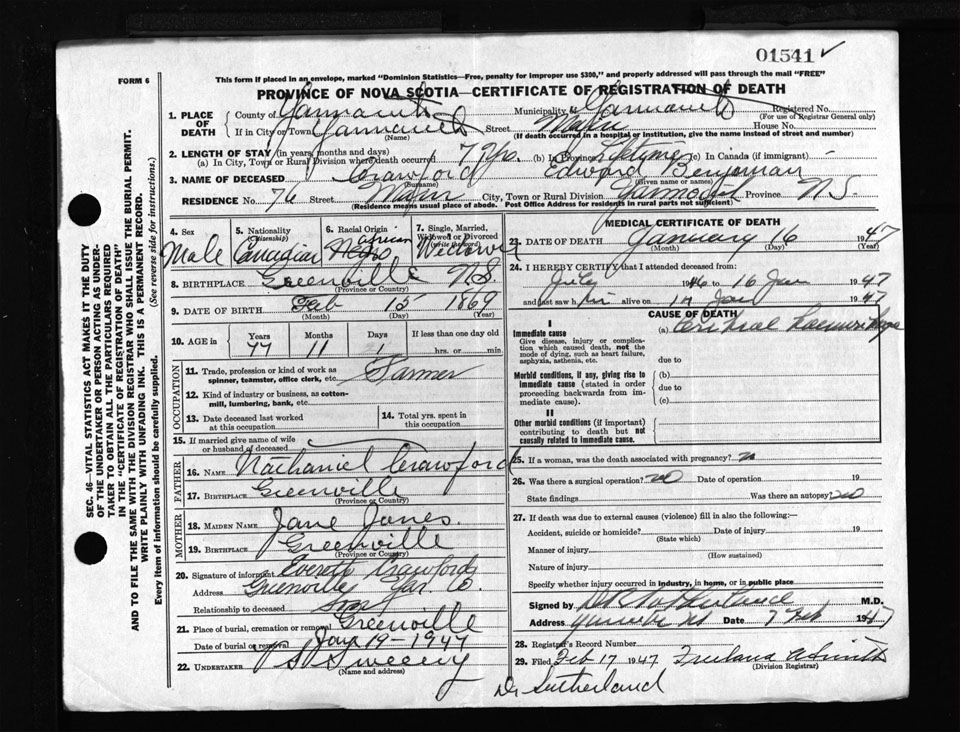 01541 ✓
FORM 6
This form if placed in an envelope, marked "Dominion Statistics—Free, penalty for improper use $300," and properly addressed will pass through the mail "FREE"
PROVINCE OF NOVA SCOTIA—CERTIFICATE OF REGISTRATION OF DEATH
1. PLACE OF DEATH
County of Yarmouth Municipality Yarmouth Registered No.
(For use of Registrar General only)
If in City or Town Yarmouth Street House No.
(Name) (If death occurred in a hospital or institution, give the name instead of street and number)
2. LENGTH OF STAY (in years, months and days)
(a) In City, Town or Rural Division where death occurred 7 yrs. (b) In Province Lifetime (c) In Canada (if immigrant) -
3. NAME OF DECEASED Crawford Edward Benjaman
(Surname) (Given name or names)
RESIDENCE No. 76 Street City, Town or Rural Division Yarmouth Province N.S
(Residence means usual place of abode. Post Office Address for residents in rural parts not sufficient)
4. Sex
Male
5. Nationality
(Citizenship)
Canadian
6. Racial Origin
African
Negro
7. Single, Married, Widowed or Divorced
(write the word)
Widower
8. BIRTHPLACE Greenville N.S.
(Province or Country)
9. DATE OF BIRTH Feb 15 1869
(Month) (Day) (Year)
10. AGE in Years Months Days If less than one day old
77 11 1 hrs. or min.
OCCUPATION
11. Trade, profession or kind of work as spinner, teamster, office clerk, etc. Farmer
12. Kind of industry or business, as cotton-mill, lumbering, bank, etc.
13. Date deceased last worked at this occupation
14. Total yrs. spent in this occupation
15. If married give name of wife or husband of deceased
FATHER
16. NAME Nathaniel Crawford
17. BIRTHPLACE Greenville
(Province or Country)
MOTHER
18. MAIDEN NAME Jane Jones.
19. BIRTHPLACE Greenville
(Province or Country)
20. Signature of informant Everett Crawford
Address Greenville Yar. Co.
Relationship to deceased son
21. Place of burial, cremation or removal Greenville
Date of burial or removal Jany 19 - 1947
22. UNDERTAKER Sweeny
(Name and address)
MEDICAL CERTIFICATE OF DEATH
23. DATE OF DEATH January 16 1947
(Month) (Day) (Year)
24. I HEREBY CERTIFY that I attended deceased from:
July 1946 to 16 Jan 1947
and last saw him alive on Jan 1947
CAUSE OF DEATH
I
Immediate cause
Give disease, injury or complication which caused death, not the mode of dying, such as heart failure, asphyxia, asthenia, etc.
(a) Cerebral Haemorrhage
due to
Morbid conditions, if any, giving rise to immediate cause (stated in order proceeding backwards from immediate cause).
(b)
due to
(c)
II
Other morbid conditions (if important) contributing to death but not causally related to immediate cause.
25. If a woman, was the death associated with pregnancy? n
26. Was there a surgical operation? no Date of operation 19
State findings Was there an autopsy? no
27. If death was due to external causes (violence) fill in also the following:—
Accident, suicide or homicide? Date of injury 19
(State which)
Manner of injury
(How sustained)
Nature of injury
Specify whether injury occurred in industry, in home, or in public place
Signed by D R Sutherland M.D.
Address Yarmouth NS Date 7 Feb 1947
28. Registrar's Record Number
29. Filed Feb 17 1947
(Division Registrar)
Dr Sutherland
SEC. 46—VITAL STATISTICS ACT MAKES IT THE DUTY OF THE UNDERTAKER OR PERSON ACTING AS UNDERTAKER TO OBTAIN ALL THE PARTICULARS REQUIRED IN THE "CERTIFICATE OF REGISTRATION OF DEATH" AND TO FILE THE SAME WITH THE DIVISION REGISTRAR WHO SHALL ISSUE THE BURIAL PERMIT.
WRITE PLAINLY WITH UNFADING INK. THIS IS A PERMANENT RECORD.
Every item of information should be carefully supplied. (See reverse side for instructions.)